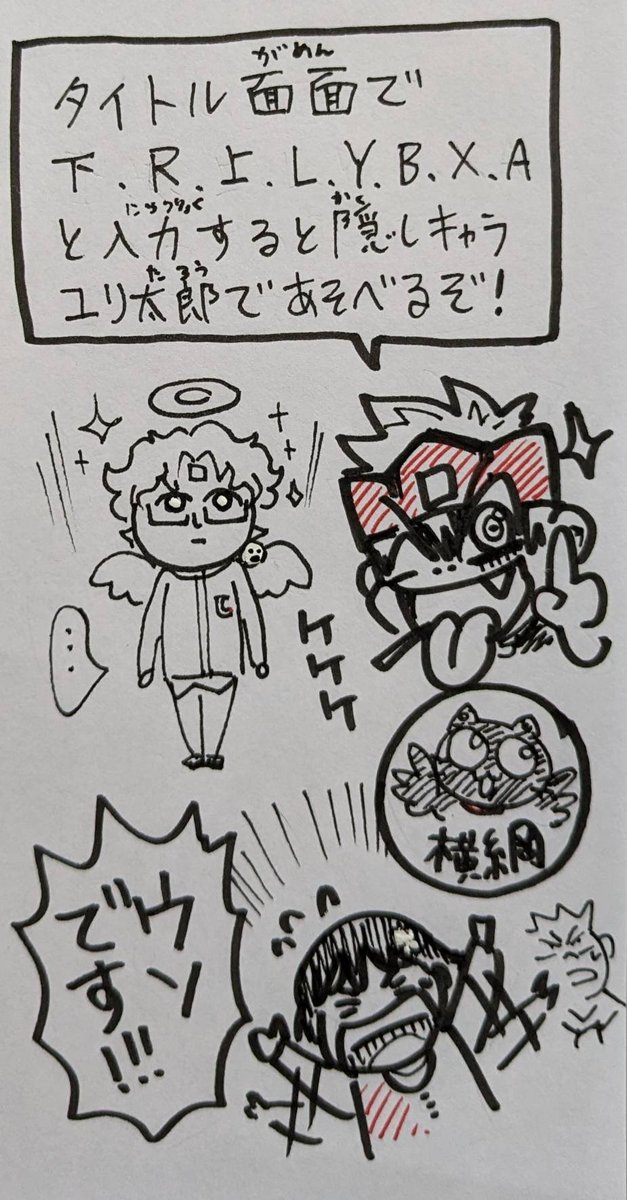 がめん
タイトル面面で
下.R.上.L.Y.B.X.A
にゅうりょく かく
と入力すると隠しキャラ
たろう
ユリ太郎であそべるぞ!
...
ケケケ
横綱
ウソ
です!!!